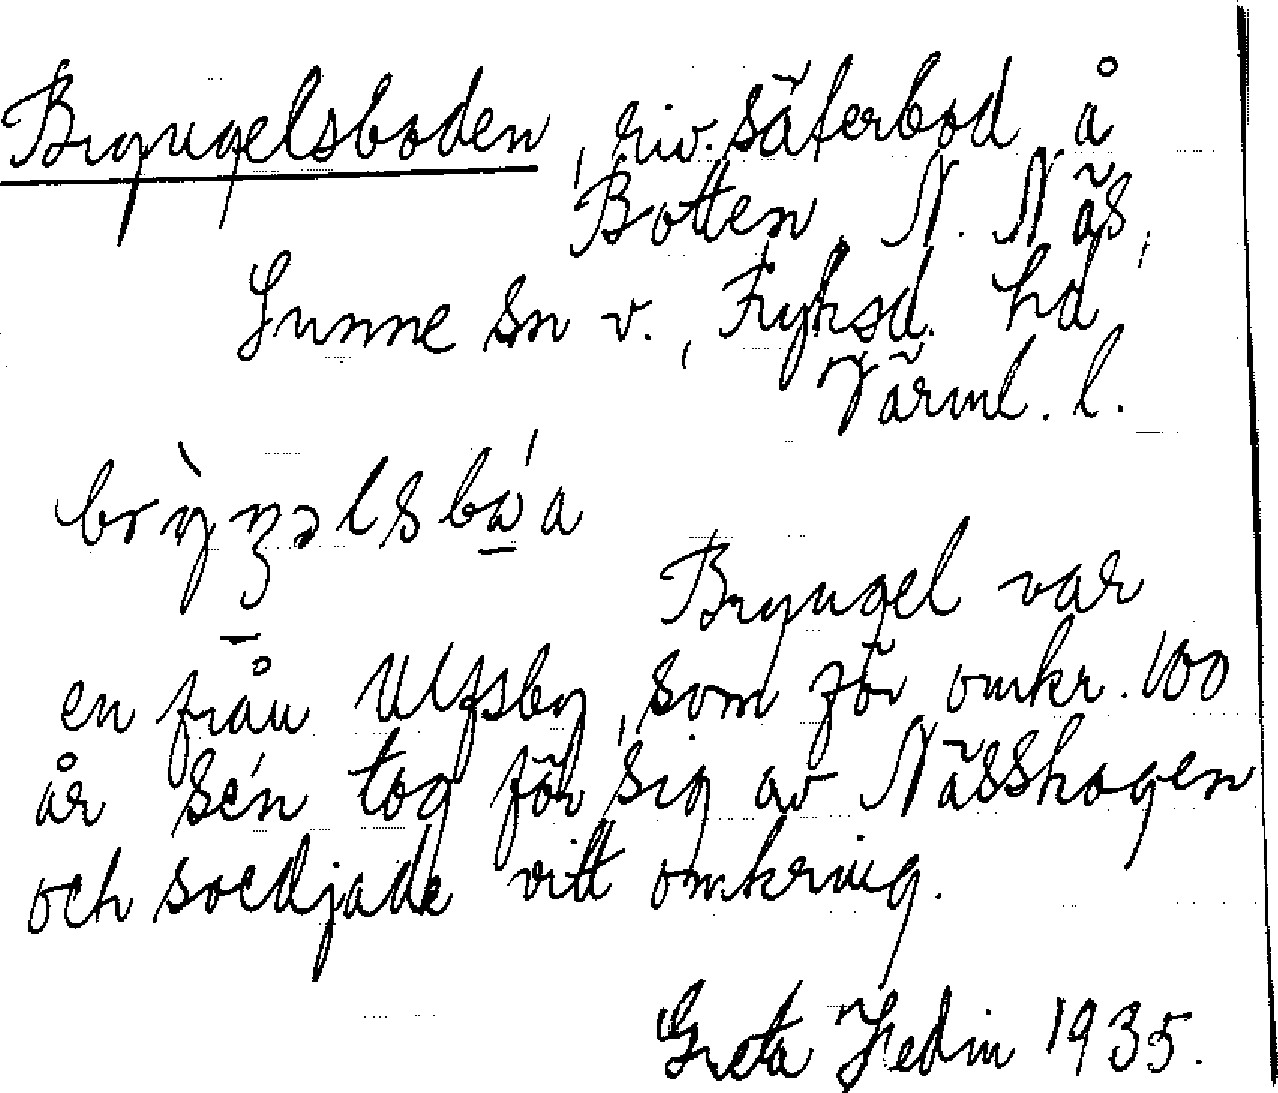 Bryngelsboden, riv. säterbod å
Botten, N. Näs,
Sunne sn v., Fryksd. hd
Värml. l.
brỳŋəlsbá̱a
Bryngel var
en från Ulfsby, som för omkr. 100
år sén tog för sig av Nässkogen
och svedjade vitt omkring.
Greta Hedin 1935.